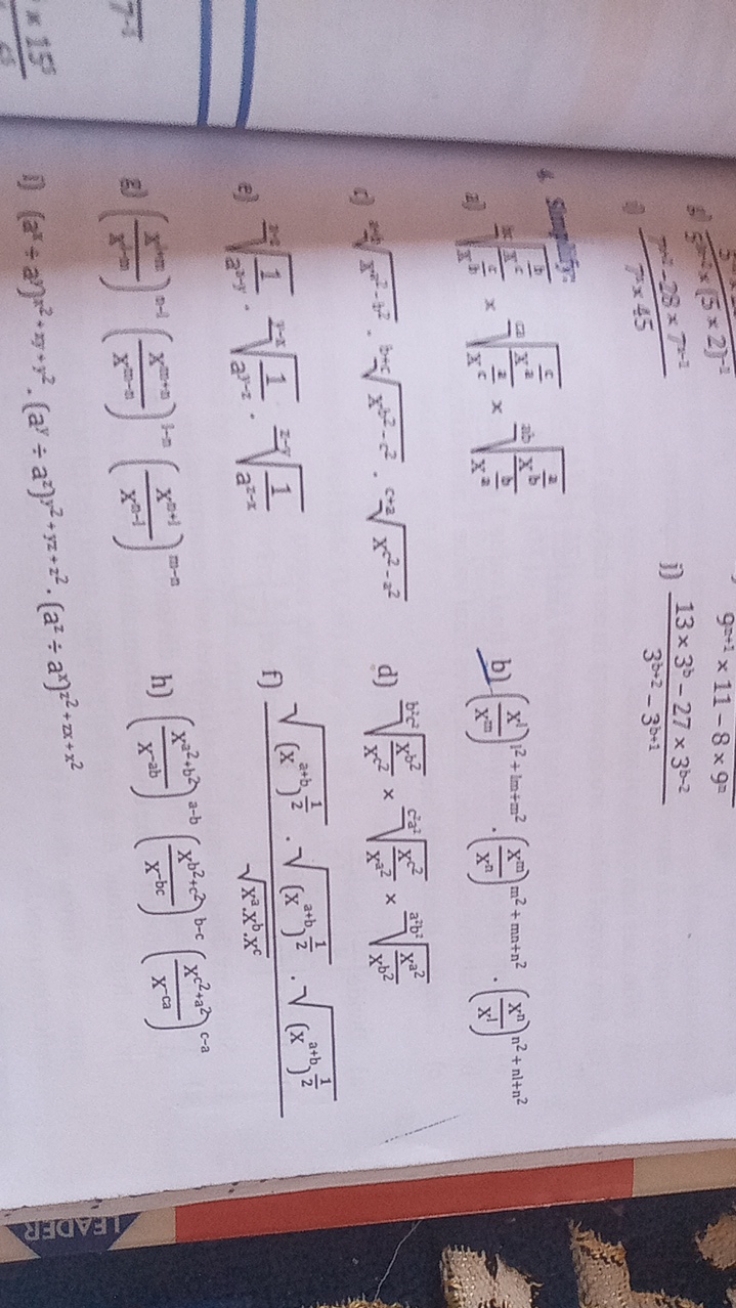 9ⁿ⁺¹ × 11 − 8 × 9ⁿ
5²ⁿ⁻² × (5 × 2)⁻¹
7ⁿ × 45
j) (13 × 3ᵇ − 27 × 3ᵇ⁻²) / (3ᵇ⁺² − 3ᵇ⁺¹)
Simplify:
a) \sqrt[bc]{\frac{x^{\frac{b}{c}}}{x^{\frac{c}{b}}}} × \sqrt[ca]{\frac{x^{\frac{c}{a}}}{x^{\frac{a}{c}}}} × \sqrt[ab]{\frac{x^{\frac{a}{b}}}{x^{\frac{b}{a}}}}
b) \left(\frac{x^l}{x^m}\right)^{l^2+lm+m^2} . \left(\frac{x^m}{x^n}\right)^{m^2+mn+n^2} . \left(\frac{x^n}{x^l}\right)^{n^2+nl+n^2}
c) \sqrt[a+b]{x^{a^2-b^2}} . \sqrt[b+c]{x^{b^2-c^2}} . \sqrt[c+a]{x^{c^2-a^2}}
d) \sqrt[b^2c^2]{\frac{x^{b^2}}{x^{c^2}}} × \sqrt[c^2a^2]{\frac{x^{c^2}}{x^{a^2}}} × \sqrt[a^2b^2]{\frac{x^{a^2}}{x^{b^2}}}
e) \sqrt{\frac{1}{a^{x-y}}} . \sqrt[y-x]{\frac{1}{a^{y-z}}} . \sqrt[z-y]{\frac{1}{a^{z-x}}}
f) \frac{\sqrt{(x^{a+b})^{\frac{1}{2}}} . \sqrt{(x^{a+b})^{\frac{1}{2}}} . \sqrt{(x^{a+b})^{\frac{1}{2}}}}{\sqrt{x^a.x^b.x^c}}
g) \left(\frac{x^{l+m}}{x^{l-m}}\right)^{n-l} \left(\frac{x^{m+n}}{x^{m-n}}\right)^{l-n} \left(\frac{x^{n+l}}{x^{n-l}}\right)^{m-n}
h) \left(\frac{x^{a^2+b^2}}{x^{-ab}}\right)^{a-b} \left(\frac{x^{b^2+c^2}}{x^{-bc}}\right)^{b-c} \left(\frac{x^{c^2+a^2}}{x^{-ca}}\right)^{c-a}
i) (a^x ÷ a^y)^{x^2+xy+y^2} . (a^y ÷ a^z)^{y^2+yz+z^2} . (a^z ÷ a^x)^{z^2+zx+x^2}
LEADER